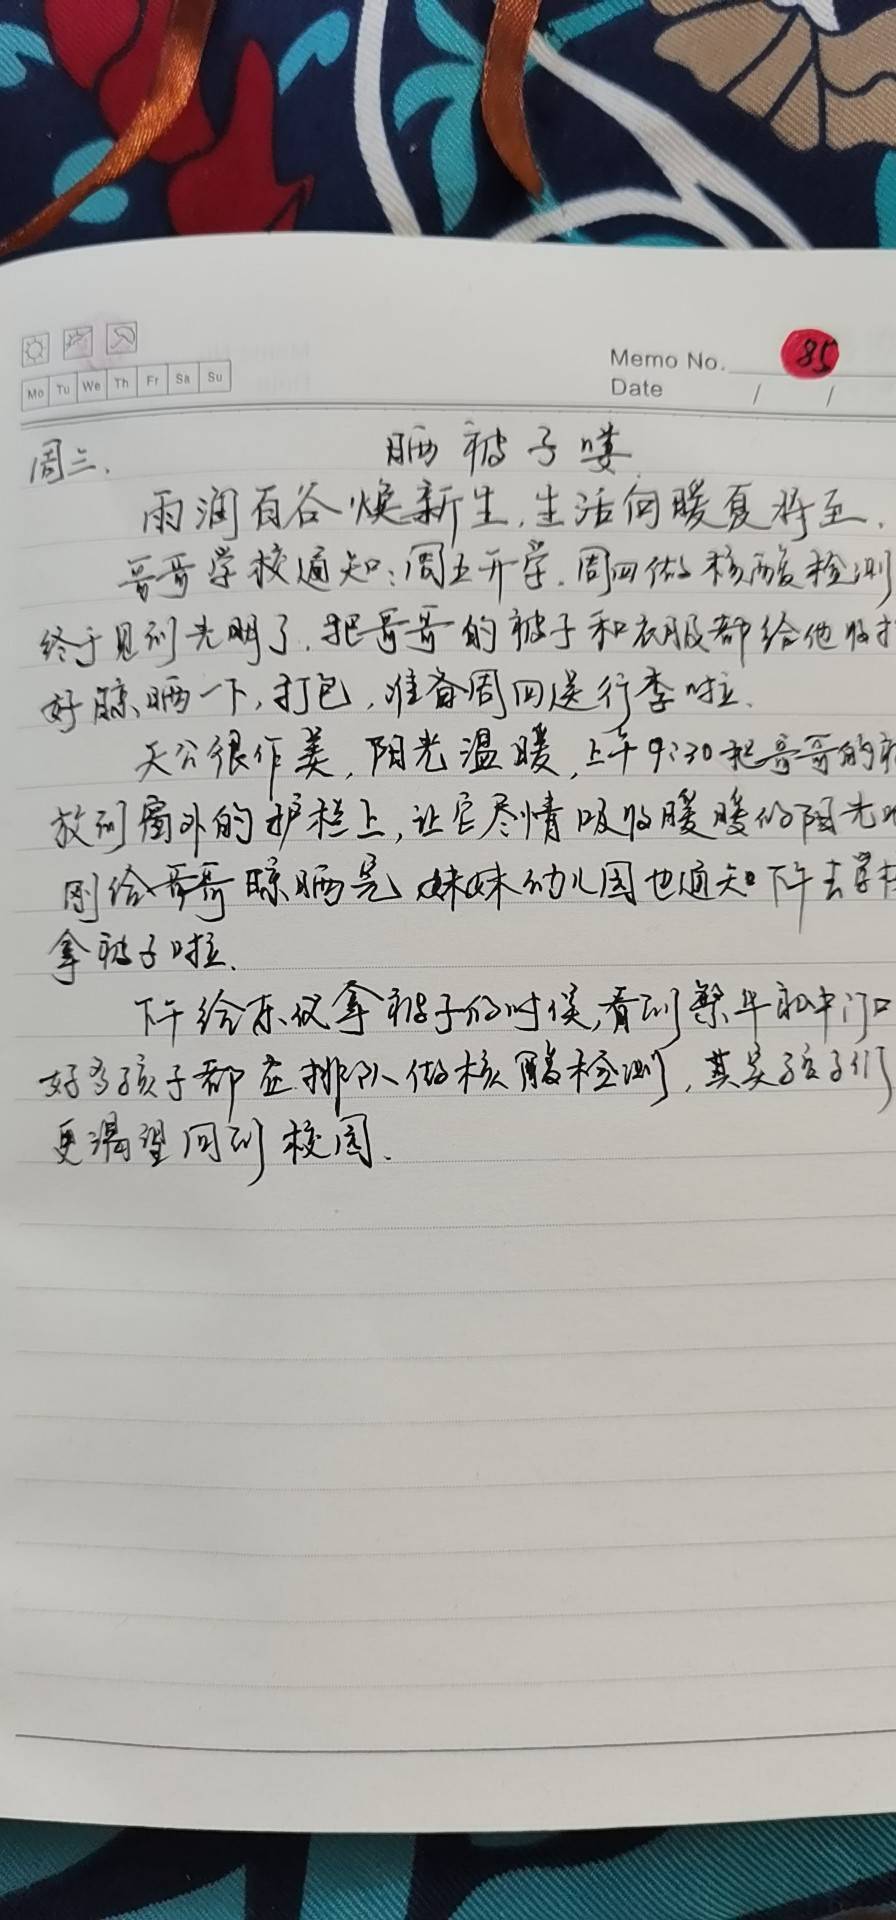 Mo Tu We Th Fr Sa Su
Memo No. 85
Date / /
周三. 晒被子喽
雨润百谷焕新生,生活向暖夏将至.
哥哥学校通知:周五开学.周四做核酸检测
终于见到光明了.把哥哥的被子和衣服都给他收拾
好晾晒一下,打包,准备周四送行李啦.
天公很作美,阳光温暖,上午9:30把哥哥的
放到窗外的护栏上,让它尽情吸收暖暖的阳光
刚给哥哥晾晒完 妹妹幼儿园也通知下午去学校
拿被子啦.
下午给东仪拿被子的时侯,看到繁华初中门口
好多孩子都在排队做核酸检测,其实孩子们
更渴望回到校园.